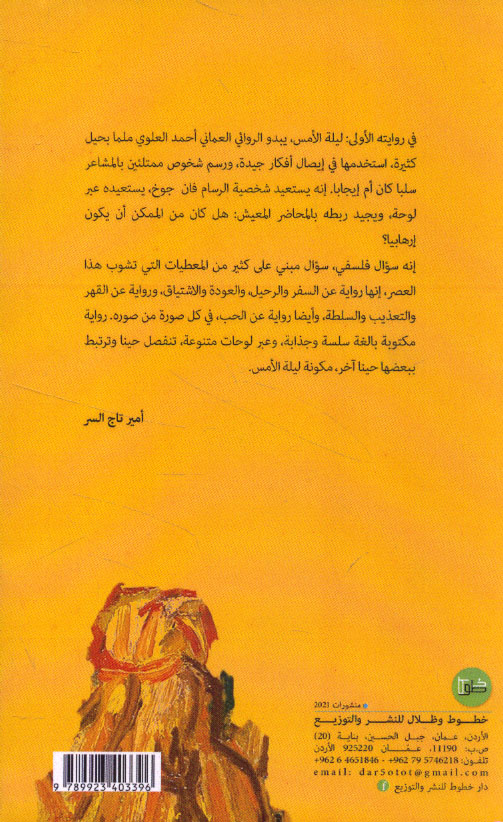 في روايته الأولى: ليلة الأمس، يبدو الروائي العماني أحمد العلوي ملما بحيل
كثيرة، استخدمها في إيصال أفكار جيدة، ورسم شخوص ممتلئين بالمشاعر
سلبا كان أم إيجابا. إنه يستعيد شخصية الرسام فان جوخ، يستعيده عبر
لوحة، ويجيد ربطه بالمحاضر المعيش: هل كان من الممكن أن يكون
إرهابيا؟
إنه سؤال فلسفي، سؤال مبني على كثير من المعطيات التي تشوب هذا
العصر، إنها رواية عن السفر والرحيل، والعودة والاشتياق، ورواية عن القهر
والتعذيب والسلطة، وأيضا رواية عن الحب، في كل صورة من صوره. رواية
مكتوبة بالغة سلسة وجذابة، وعبر لوحات متنوعة، تنفصل حينا وترتبط
ببعضها حينا آخر، مكونة ليلة الأمس.
أمير تاج السر
منشورات 2021
خطوط وظلال للنشر والتوزيع
الأردن، عمان، جبل الحسين، بناية (20)
ص.ب: 11190، عمّان 925220 الأردن
تلفون: 79 5746218 962+ - 6 4651846 962+
email: dar5otot@gmail.com
دار خطوط للنشر والتوزيع
9 789923 403396